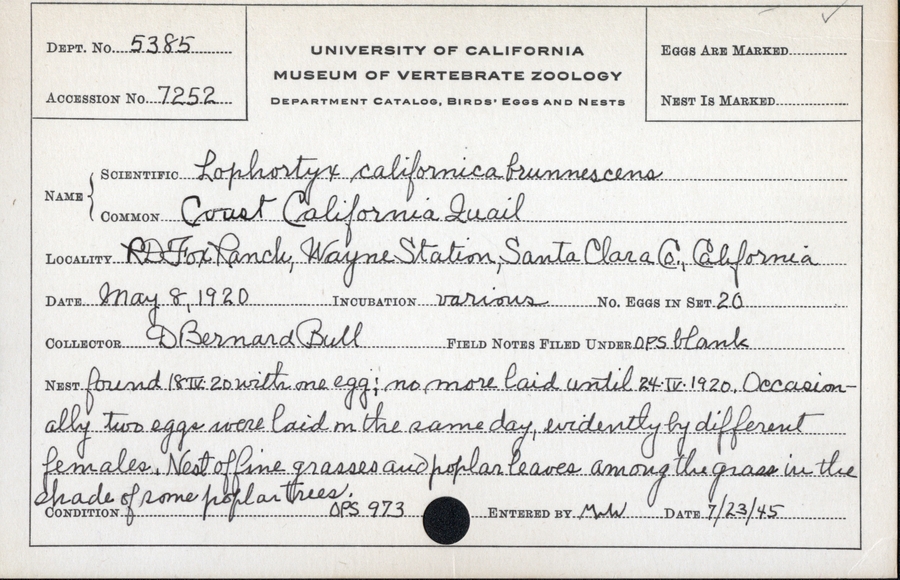 DEPT. No. 5385
ACCESSION No. 7252
UNIVERSITY OF CALIFORNIA
MUSEUM OF VERTEBRATE ZOOLOGY
DEPARTMENT CATALOG, BIRDS' EGGS AND NESTS
EGGS ARE MARKED
NEST IS MARKED
NAME
SCIENTIFIC Lophortyx californica brunnescens
COMMON Coast California Quail
LOCALITY RD Fox Ranch, Wayne Station, Santa Clara Co., California
DATE May 8, 1920 INCUBATION various No. EGGS IN SET 20
COLLECTOR D Bernard Bull FIELD NOTES FILED UNDER OPS blank
NEST found 18·IV·20 with one egg; no more laid until 24·IV·1920. Occasion-
ally two eggs were laid on the same day, evidently by different
females. Nest of fine grasses and poplar leaves among the grass in the
shade of some poplar trees.
CONDITION OPS 973 ENTERED BY MWW DATE 7/23/45